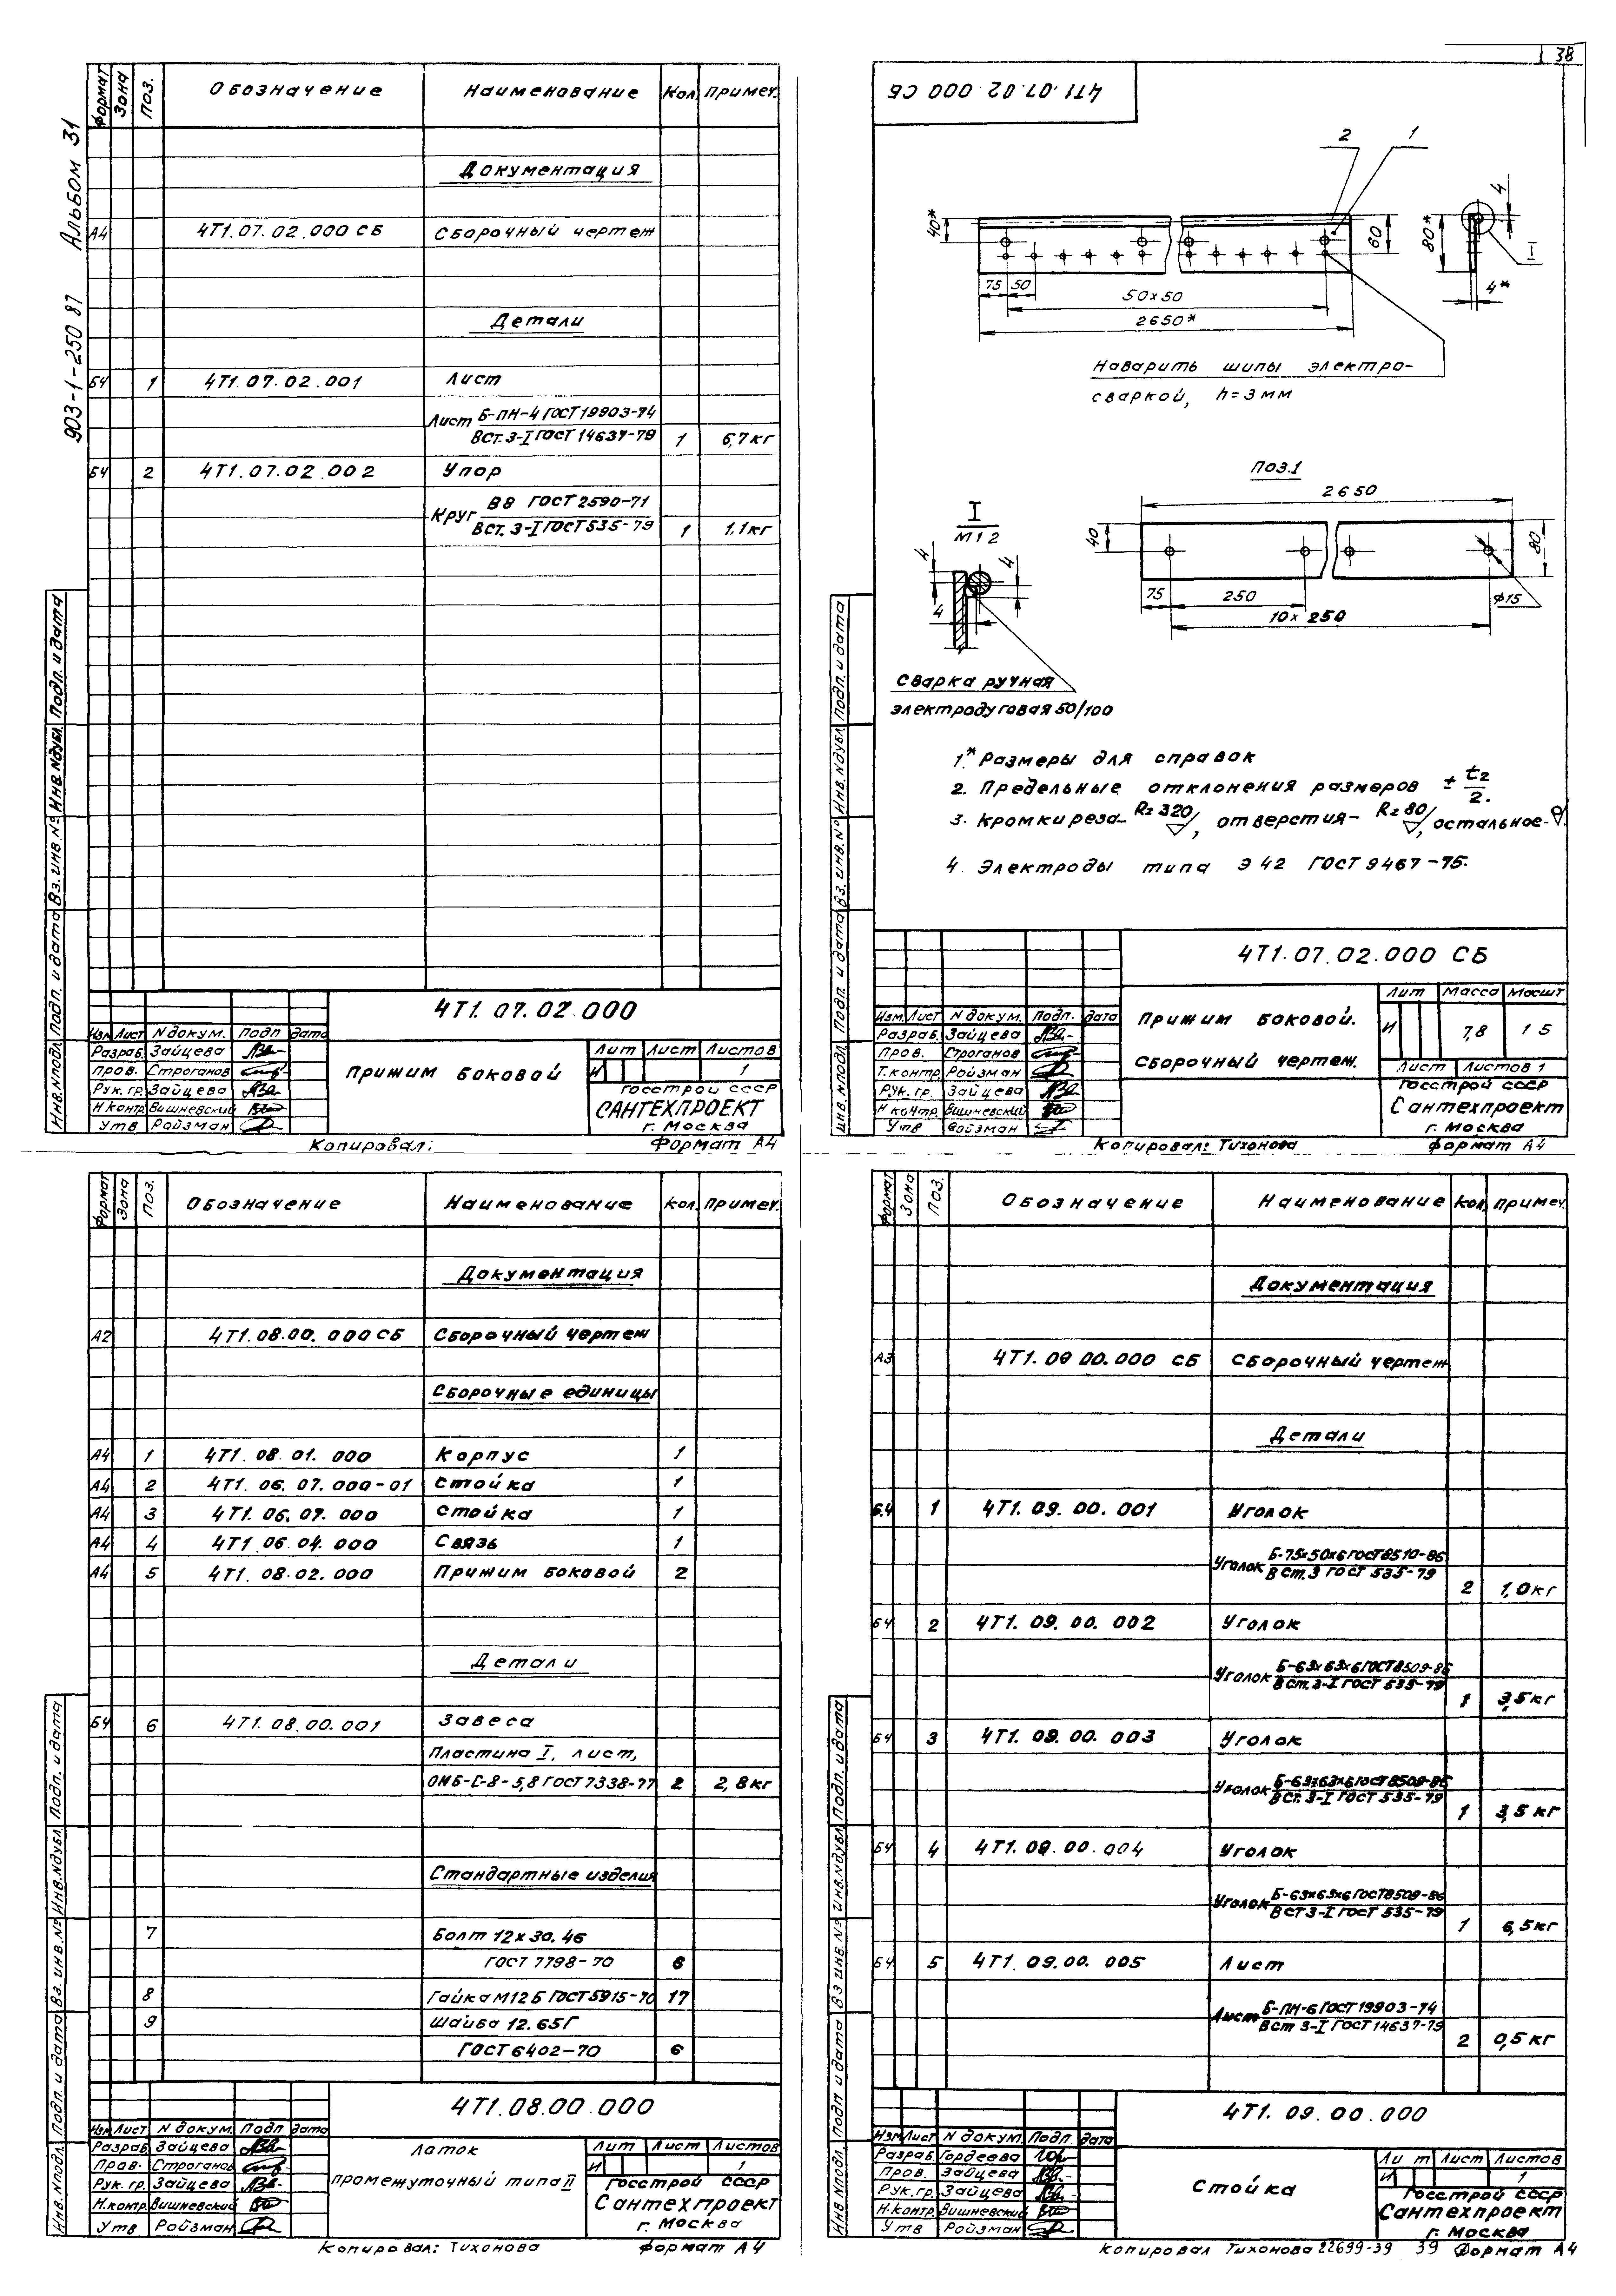 903-1-250 87 Альбом 31
Формат Зона Поз. Обозначение Наименование Кол. Примеч.
Документация
А4 4Т1.07.02.000 СБ Сборочный чертеж
Детали
Б4 1 4Т1.07.02.001 Лист
Лист Б-ПН-4 ГОСТ 19903-74
ВСт.3-I ГОСТ 14637-79 1 6,7кг
Б4 2 4Т1.07.02.002 Упор
Круг В8 ГОСТ 2590-71
ВСт.3-I ГОСТ 535-79 1 1,1кг
Инв.Nподл. Подп. и дата Вз. инв № Инв. Nдубл. Подп. и дата
4Т1.07.02.000
Изм Лист N докум. Подп дата
Разраб. Зайцева
Пров. Строганов
Рук. гр. Зайцева
Н контр. Вишневский
Утв Ройзман
Прижим боковой
Лит Лист Листов
И 1
Госстрой СССР
САНТЕХПРОЕКТ
г. Москва
Копировал: Формат А4
38
4Т1.07.02.000 СБ
2 1
40* 60 80* 4 I
75 50 4*
50х50
2650*
Наварить шипы электро-
сваркой, h=3мм
Поз.1
2650
40 80
75 250 ф15
10х250
I
М1 2
4 4
4
Сварка ручная
электродуговая 50/100
1.* Размеры для справок
2. Предельные отклонения размеров ± t2/2.
3. Кромки реза- Rz320, отверстия- Rz80, остальное-
4. Электроды типа Э42 ГОСТ 9467-75.
Инв.Nподл. Подп. и дата Вз. инв. № Инв. Nдубл. Подп. и дата
4Т1.07.02.000 СБ
Изм. Лист N докум. Подп. дата
Разраб. Зайцева
Пров. Строганов
Т.контр. Ройзман
Рук. гр. Зайцева
Н контр. Вишневский
Утв Ройзман
Прижим боковой.
Сборочный чертеж.
Лит Масса Масшт
И 7,8 1 5
Лист Листов 1
Госстрой СССР
Сантехпроект
г. Москва
Копировал: Тихонова Формат А4
Формат Зона Поз. Обозначение Наименование Кол. Примеч.
Документация
А2 4Т1.08.00.000СБ Сборочный чертеж
Сборочные единицы
А4 1 4Т1.08.01.000 Корпус 1
А4 2 4Т1.06.07.000-01 Стойка 1
А4 3 4Т1.06.07.000 Стойка 1
А4 4 4Т1.06.04.000 Связь 1
А4 5 4Т1.08.02.000 Прижим боковой 2
Детали
Б4 6 4Т1.08.00.001 Завеса
Пластина I, лист,
ОМБ-С-8-5,8 ГОСТ 7338-77 2 2,8кг
Стандартные изделия
7 Болт 12х30.46
ГОСТ 7798-70 6
8 Гайка М12Б ГОСТ 5915-70 17
9 Шайба 12.65Г
ГОСТ 6402-70 6
Инв.Nподл. Подп. и дата Вз. инв.№ Инв.Nдубл. Подп. и дата
4Т1.08.00.000
Изм Лист N докум. Подп. дата
Разраб. Зайцева
Пров. Строганов
Рук. гр. Зайцева
Н.контр. Вишневский
Утв Ройзман
Латок
промежуточный типа II
Лит Лист Листов
И 1
Госстрой СССР
Сантехпроект
г. Москва
Копировал: Тихонова Формат А4
Формат Зона Поз. Обозначение Наименование Кол. Примеч.
Документация
А3 4Т1.09 00.000 СБ Сборочный чертеж
Детали
Б4 1 4Т1.09.00.001 Уголок
Уголок Б-75х50х6 ГОСТ 8510-86
ВСт.3 ГОСТ 535-79 2 1,0кг
Б4 2 4Т1.09.00.002 Уголок
Уголок Б-63х63х6 ГОСТ 8509-86
ВСт.3-I ГОСТ 535-79 1 3,5кг
Б4 3 4Т1.09.00.003 Уголок
Уголок Б-63х63х6 ГОСТ 8509-86
ВСт.3-I ГОСТ 535-79 1 3,5кг
Б4 4 4Т1.09.00.004 Уголок
Уголок Б-63х63х6 ГОСТ 8509-86
ВСт3-I ГОСТ 535-79 1 6,5кг
Б4 5 4Т1.09.00.005 Лист
Лист Б-ПН-6 ГОСТ 19903-74
ВСт 3-I ГОСТ 14637-79 2 0,5кг
Инв.Nподл. Подп и дата Вз инв.№ Инв.Nдубл. Подп. и дата
4Т1.09.00.000
Изм Лист N докум. Подп дата
Разраб. Гордеева
Пров. Зайцева
Рук.гр. Зайцева
Н.контр. Вишневский
Утв Ройзман
Стойка
Лит Лист Листов
И 1
Госстрой СССР
Сантехпроект
г. Москва
Копировал Тихонова 22699-39 39 Формат А4